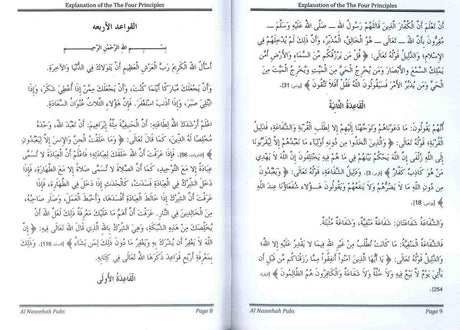 Explanation of the The Four Principles
القواعد الأربعه
بِسْمِ اللهِ الرَّحْمٰنِ الرَّحِيمِ
أَسْأَلُ اللهَ الْكَرِيمَ رَبَّ الْعَرْشِ الْعَظِيمِ أَنْ يَتَوَلَّاكَ فِي الدُّنْيَا وَالآخِرَةِ،
وَأَنْ يَجْعَلَكَ مُبَارَكًا أَيْنَمَا كُنْتَ، وَأَنْ يَجْعَلَكَ مِمَّنْ إِذَا أُعْطِيَ شَكَرَ، وَإِذَا
ابْتُلِيَ صَبَرَ، وَإِذَا أَذْنَبَ اسْتَغْفَرَ. فَإِنَّ هَؤُلَاءِ الثَّلَاثُ عُنْوَانُ السَّعَادَةِ.
اعْلَمْ أَرْشَدَكَ اللهُ لِطَاعَتِهِ: أَنَّ الْحَنِيفِيَّةَ مِلَّةَ إِبْرَاهِيمَ: أَنْ تَعْبُدَ اللهَ، وَحْدَهُ
مُخْلِصًا لَهُ الدِّينَ، كَمَا قَالَ تَعَالَى: ﴿ وَمَا خَلَقْتُ الْجِنَّ وَالْإِنْسَ إِلَّا لِيَعْبُدُونِ
﴾ [الذاريات: 56]. فَإِذَا عَرَفْتَ أَنَّ اللهَ خَلَقَكَ لِعِبَادَتِهِ؛ فَاعْلَمْ أَنَّ الْعِبَادَةَ لَا تُسَمَّى
عِبَادَةً إِلَّا مَعَ التَّوْحِيدِ، كَمَا أَنَّ الصَّلَاةَ لَا تُسَمَّى صَلَاةً إِلَّا مَعَ الطَّهَارَةِ، فَإِذَا
دَخَلَ الشِّرْكُ فِي الْعِبَادَةِ فَسَدَتْ، كَالْحَدَثِ إِذَا دَخَلَ فِي الطَّهَارَةِ، فَإِذَا
عَرَفْتَ أَنَّ الشِّرْكَ إِذَا خَالَطَ الْعِبَادَةَ أَفْسَدَهَا، وَأَحْبَطَ الْعَمَلَ، وَصَارَ صَاحِبُهُ،
مِنَ الْخَالِدِينَ فِي النَّارِ، عَرَفْتَ أَنَّ أَهَمَّ مَا عَلَيْكَ مَعْرِفَةُ ذَلِكَ، لَعَلَّ اللهَ أَنْ
يُخَلِّصَكَ مِنْ هَذِهِ الشَّبَكَةِ، وَهِيَ الشِّرْكُ بِاللهِ الَّذِي قَالَ اللهُ تَعَالَى فِيهِ: ﴿ إِنَّ
اللهَ لَا يَغْفِرُ أَنْ يُشْرَكَ بِهِ وَيَغْفِرُ مَا دُونَ ذَلِكَ لِمَنْ يَشَاءُ ﴾ [النساء: 116]. وَذَلِكَ
بِمَعْرِفَةِ أَرْبَعِ قَوَاعِدَ ذَكَرَهَا اللهُ تَعَالَى فِي كِتَابِهِ.
الْقَاعِدَةُ الْأُولَى
Al Naseehah Pubs Page 8
Explanation of the The Four Principles
أَنْ تَعْلَمَ أَنَّ الْكُفَّارَ الَّذِينَ قَاتَلَهُمْ رَسُولُ اللهِ – صَلَّى اللهُ عَلَيْهِ وَسَلَّمَ –
مُقِرُّونَ بِأَنَّ اللهَ – هُوَ الْخَالِقُ، الْمُدَبِّرُ، وَأَنَّ ذَلِكَ لَمْ يُدْخِلْهُمْ فِي
الْإِسْلَامِ، وَالدَّلِيلُ قَوْلُهُ تَعَالَى: ﴿ قُلْ مَنْ يَرْزُقُكُمْ مِنَ السَّمَاءِ وَالْأَرْضِ أَمَّنْ
يَمْلِكُ السَّمْعَ وَالْأَبْصَارَ وَمَنْ يُخْرِجُ الْحَيَّ مِنَ الْمَيِّتِ وَيُخْرِجُ الْمَيِّتَ مِنَ
الْحَيِّ وَمَنْ يُدَبِّرُ الْأَمْرَ فَسَيَقُولُونَ اللهُ فَقُلْ أَفَلَا تَتَّقُونَ ﴾ [يونس: 31].
الْقَاعِدَةُ الثَّانِيَةُ
أَنَّهُمْ يَقُولُونَ: مَا دَعَوْنَاهُمْ وَتَوَجَّهْنَا إِلَيْهِمْ إِلَّا لِطَلَبِ الْقُرْبَةِ وَالشَّفَاعَةِ، فَدَلِيلُ
الْقُرْبَةِ، قَوْلُهُ تَعَالَى: ﴿ وَالَّذِينَ اتَّخَذُوا مِنْ دُونِهِ أَوْلِيَاءَ مَا نَعْبُدُهُمْ إِلَّا لِيُقَرِّبُونَا
إِلَى اللهِ زُلْفَى إِنَّ اللهَ يَحْكُمُ بَيْنَهُمْ فِي مَا هُمْ فِيهِ يَخْتَلِفُونَ إِنَّ اللهَ لَا يَهْدِي
مَنْ هُوَ كَاذِبٌ كَفَّارٌ ﴾ [الزمر: 3]. وَدَلِيلُ الشَّفَاعَةِ، قَوْلُهُ تَعَالَى: ﴿ وَيَعْبُدُونَ
مِنْ دُونِ اللهِ مَا لَا يَضُرُّهُمْ وَلَا يَنْفَعُهُمْ وَيَقُولُونَ هَؤُلَاءِ شُفَعَاؤُنَا عِنْدَ اللهِ
﴾ [يونس: 18].
وَالشَّفَاعَةُ شَفَاعَتَانِ: شَفَاعَةٌ مَنْفِيَّةٌ، وَشَفَاعَةٌ مُثْبَتَةٌ.
فَالشَّفَاعَةُ الْمَنْفِيَّةُ: مَا كَانَتْ تُطْلَبُ مِنْ غَيْرِ اللهِ فِيمَا لَا يَقْدِرُ عَلَيْهِ إِلَّا اللهُ،
وَالدَّلِيلُ قَوْلُهُ تَعَالَى: ﴿ يَا أَيُّهَا الَّذِينَ آمَنُوا أَنْفِقُوا مِمَّا رَزَقْنَاكُمْ مِنْ قَبْلِ أَنْ
يَأْتِيَ يَوْمٌ لَا بَيْعٌ فِيهِ وَلَا خُلَّةٌ وَلَا شَفَاعَةٌ وَالْكَافِرُونَ هُمُ الظَّالِمُونَ ﴾
254].
Al Naseehah Pubs Page 9